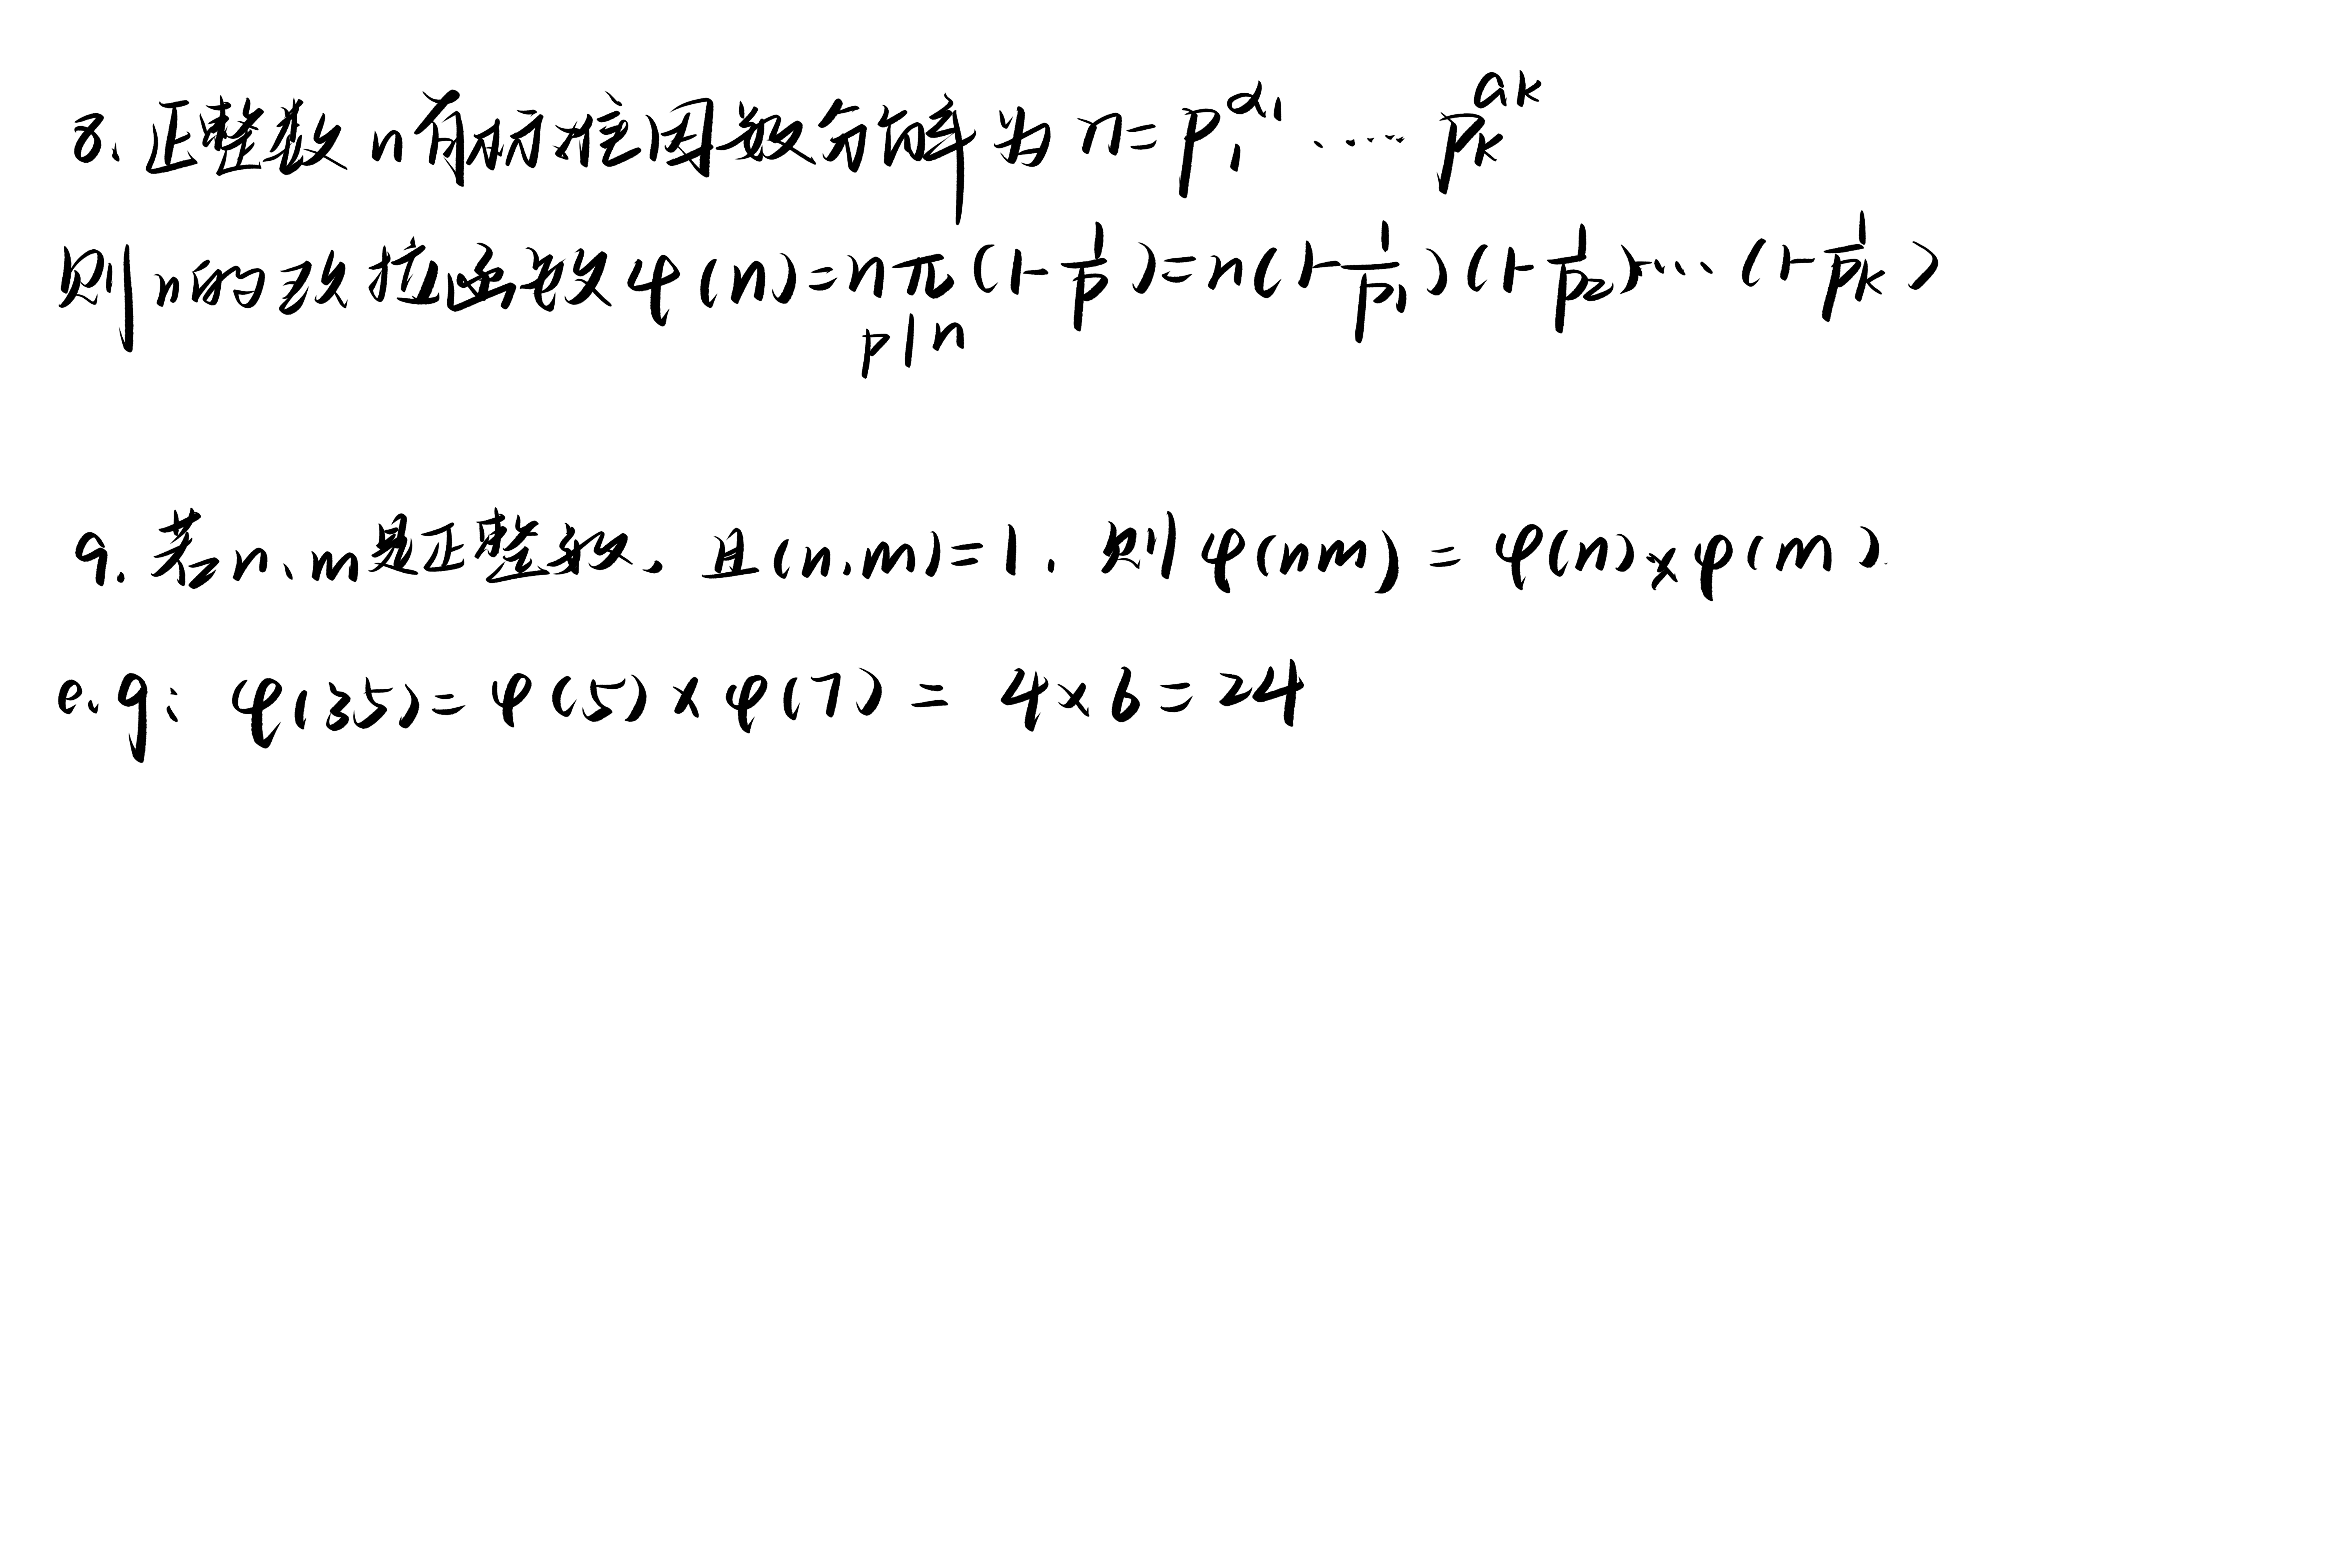 8. 正整数 n 有标准因数分解为 n=p₁^α₁ ····· pₖ^αₖ
则 n 的欧拉函数 φ(n)=n∏(1-1/p)=n(1-1/p₁)(1-1/p₂)···(1-1/pₖ)
p|n
9. 若n、m是正整数, 且(n.m)=1. 则φ(nm)=φ(n)×φ(m).
e.g: φ(35)=φ(5)×φ(7)= 4×6=24